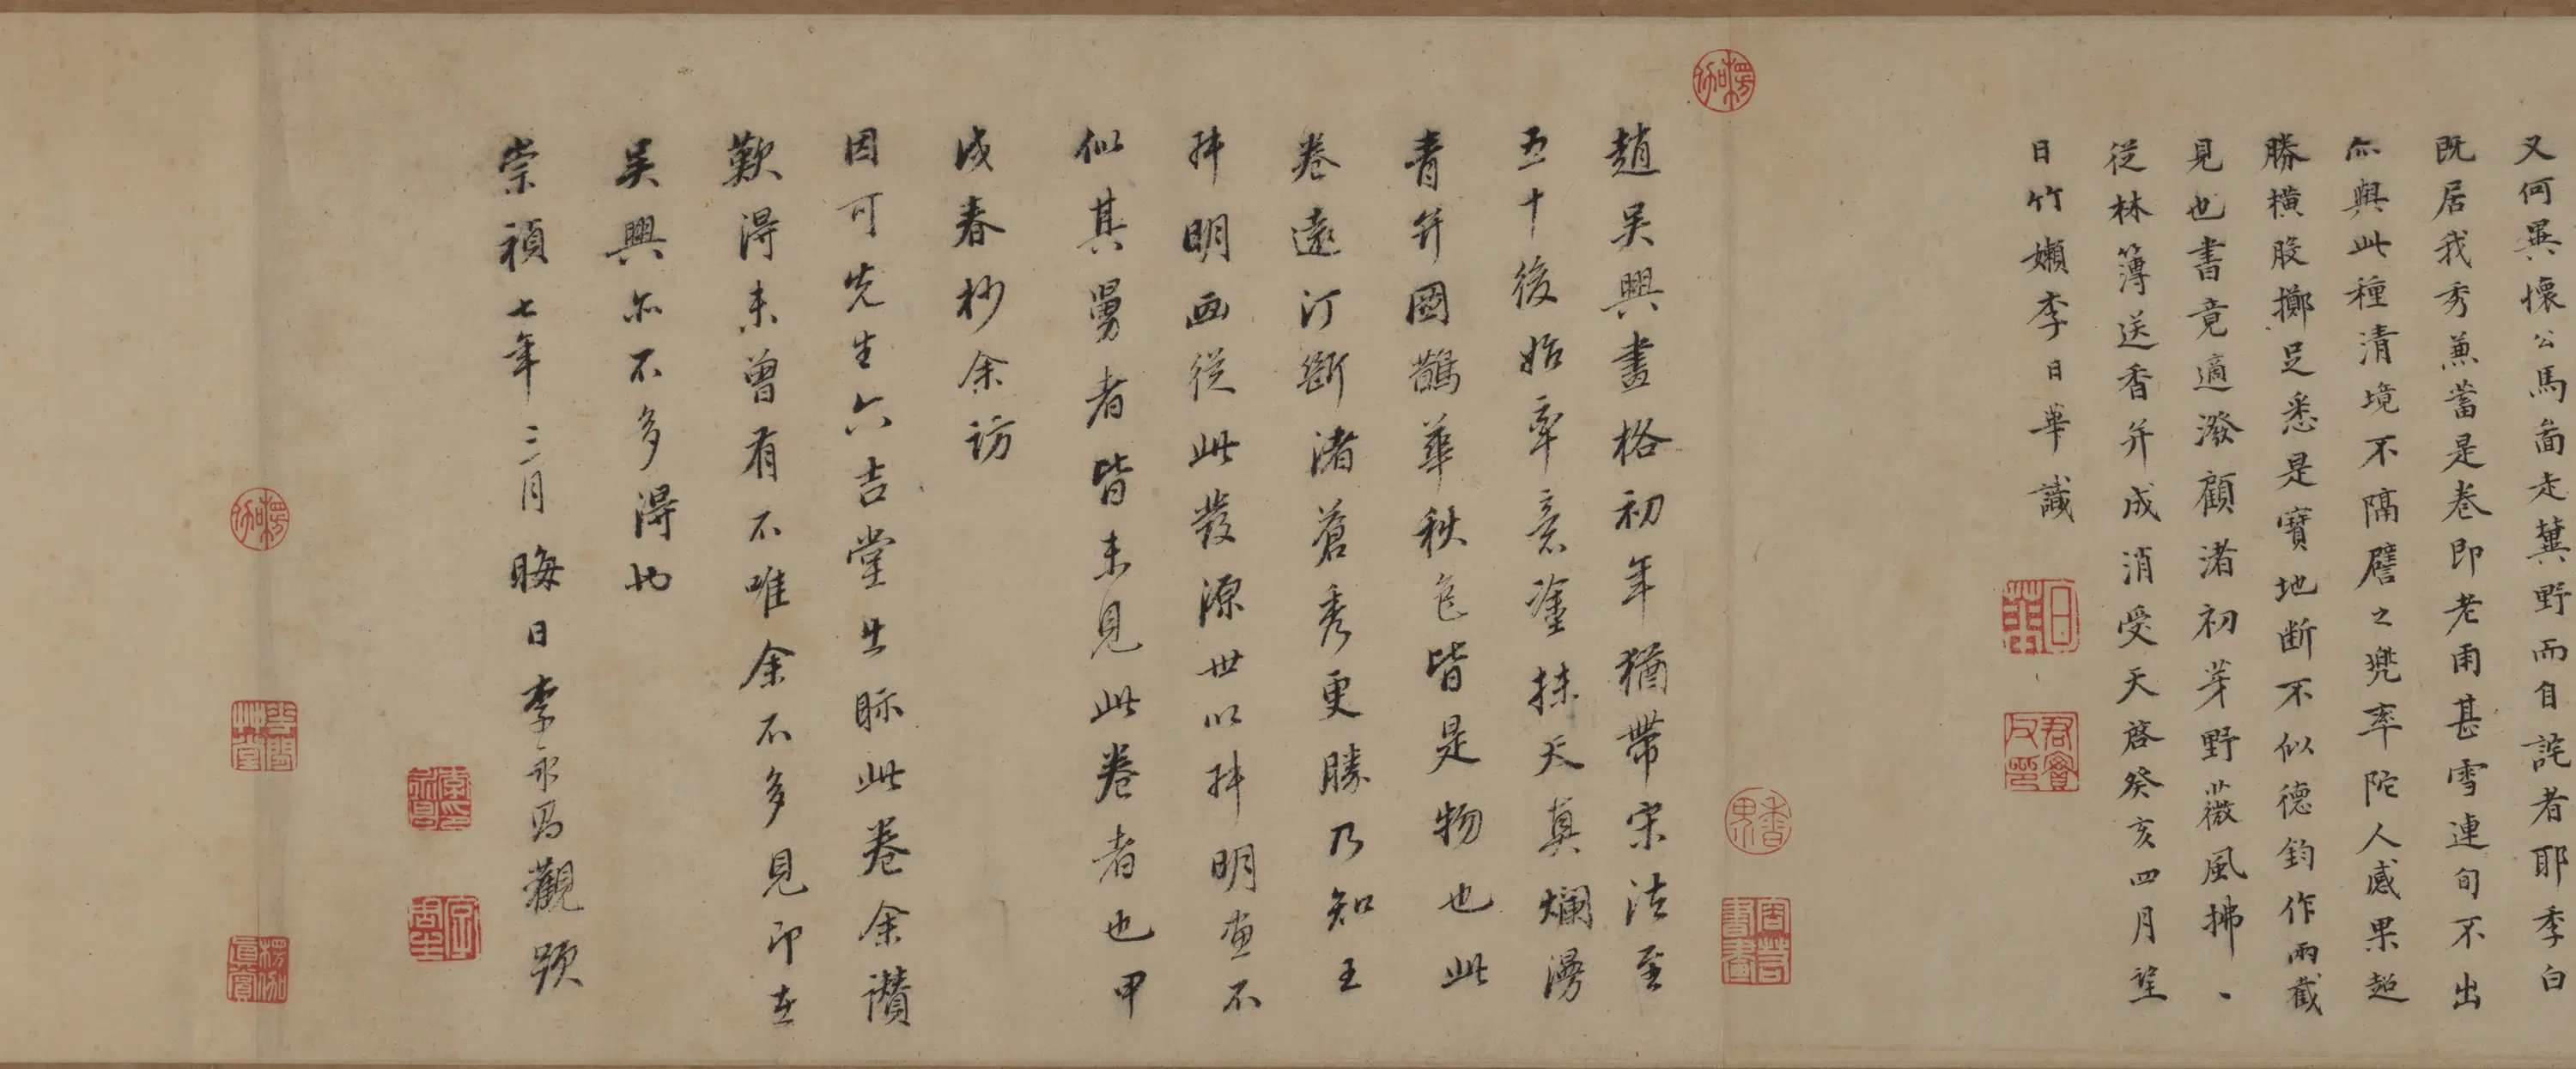 又何異懷公馬啚走冀野而自詫者耶季白
既居我秀兼蓄是卷即老甫甚雪連旬不出
亦與此種清境不隔譬之兜率陀人感果超
勝橫股擲足悉是寶地断不似德鈞作兩截
見也書竟適潑顧渚初芽野薇風拂、
從林薄送香并成消受天啓癸亥四月望
日竹嬾李日華識
趙吳興畫格初年猶帶宋法至
五十後始率意塗抹天真爛漫
青弁圖鵲華秋色皆是物也此
卷遠汀斷渚蒼秀更勝乃知王
叔明画從此發源世以叔明画不
似其舅者皆未見此卷者也甲
戌春杪余訪
因可先生六吉堂出眎此卷余讃
歎得未曾有不唯余不多見即在
吳興亦不多得也
崇禎七年三月晦日李永昌觀題